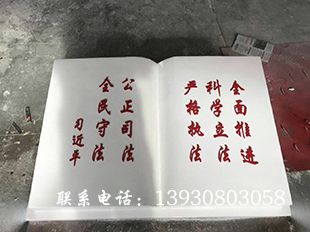 全面推进
科学立法
严格执法
公正司法
全民守法
习近平
联系电话：13930803058